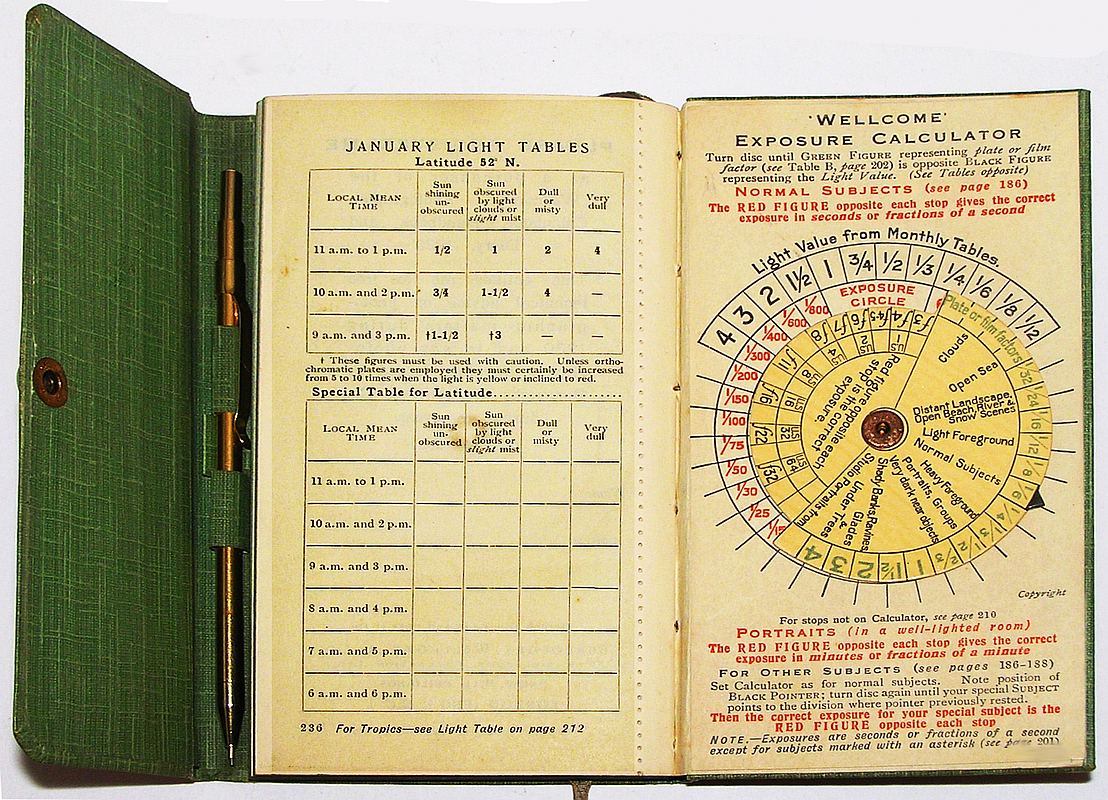 JANUARY LIGHT TABLES
Latitude 52° N.
LOCAL MEAN TIME | Sun shining un-obscured | Sun obscured by light clouds or slight mist | Dull or misty | Very dull
11 a.m. to 1 p.m. | 1/2 | 1 | 2 | 4
10 a.m. and 2 p.m. | 3/4 | 1-1/2 | 4 | —
9 a.m. and 3 p.m. | †1-1/2 | †3 | — | —
† These figures must be used with caution. Unless ortho-
chromatic plates are employed they must certainly be increased
from 5 to 10 times when the light is yellow or inclined to red.
Special Table for Latitude........................
LOCAL MEAN TIME | Sun shining un-obscured | Sun obscured by light clouds or slight mist | Dull or misty | Very dull
11 a.m. to 1 p.m.
10 a.m. and 2 p.m.
9 a.m. and 3 p.m.
8 a.m. and 4 p.m.
7 a.m. and 5 p.m.
6 a.m. and 6 p.m.
236 For Tropics—see Light Table on page 212
'WELLCOME'
EXPOSURE CALCULATOR
Turn disc until GREEN FIGURE representing plate or film
factor (see Table B, page 202) is opposite BLACK FIGURE
representing the Light Value. (See Tables opposite)
NORMAL SUBJECTS (see page 186)
The RED FIGURE opposite each stop gives the correct
exposure in seconds or fractions of a second
Light Value from Monthly Tables.
4 3 2 1½ 1 3/4 1/2 1/3 1/4 1/6 1/8 1/12
EXPOSURE
CIRCLE
1/800 1/600 1/400 1/300 1/200 1/150 1/100 1/75 1/50 1/30 1/25 1/15
Plate or film factors
1/32 1/24 1/16 1/12 1/8 1/6 1/4 1/3 1/2 2/3 1 1½ 2 3 4
f8 f11 f16 f22 f32
Red figure opposite each
stop is the correct
exposure.
Clouds
Open Sea
Distant Landscape,
Open Beach, River &
Snow Scenes
Light Foreground
Normal Subjects
Heavy Foreground
Portraits, Groups
Very dark near objects
Shady Banks, Ravines,
Glades
Under Trees
Studio Portraits from
Copyright
For stops not on Calculator, see page 210
PORTRAITS (in a well-lighted room)
The RED FIGURE opposite each stop gives the correct
exposure in minutes or fractions of a minute
FOR OTHER SUBJECTS (see pages 186-188)
Set Calculator as for normal subjects. Note position of
BLACK POINTER; turn disc again until your special SUBJECT
points to the division where pointer previously rested.
Then the correct exposure for your special subject is the
RED FIGURE opposite each stop
NOTE.—Exposures are seconds or fractions of a second
except for subjects marked with an asterisk (see page 201)